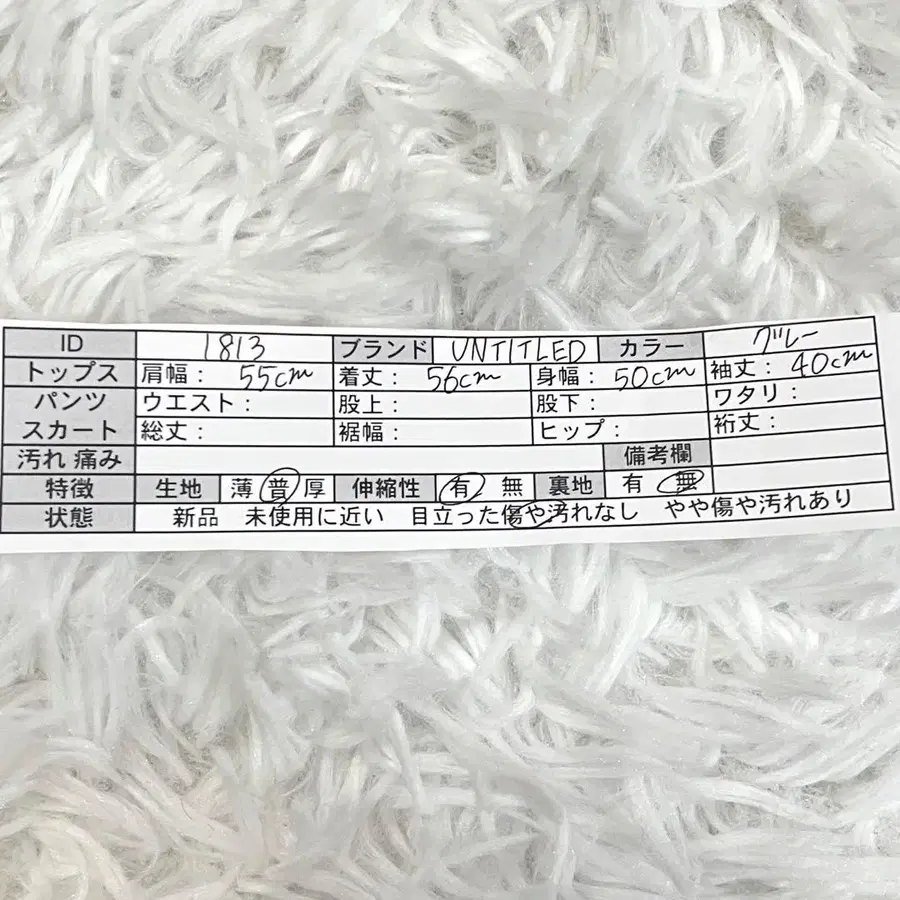 ID 1813 ブランド UNTITLED カラー グレー
トップス 肩幅： 55cm 着丈： 56cm 身幅： 50cm 袖丈： 40cm
パンツ ウエスト： 股上： 股下： ワタリ：
スカート 総丈： 裾幅： ヒップ： 裄丈：
汚れ 痛み 備考欄
特徴 生地 薄 普 厚 伸縮性 有 無 裏地 有 無
状態 新品 未使用に近い 目立った傷や汚れなし やや傷や汚れあり